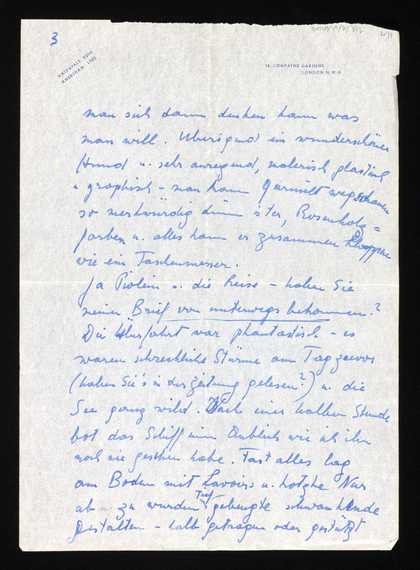 3
MAIDA VALE 1080
16, COMPAYNE GARDENS
LONDON N.W.6
man sich dann denken kann was
man will. Uberigend ein wunderschöner
Hund u. sehr anregend, malerisch plastisch
u graphisch – man kann
so merkwürdig dünn ist er, Rosenholz=
farben u. alles kann er zusammen klappen
wie ein Taschenmesser.
Ja u. die Reise – haben Sie
meinen Brief von unterwegs bekommen?
Die Überfahrt war phantastisch – es
waren schreckliche Stürme am Tag zuvor
(haben Sie's in der Zeitung gelesen?) u. die
See ganz wild. Nach einer halben Stunde
bot das Schiff einen Anblick wie ich ihn
noch nie gesehen habe. Fast alles lag
am Boden mit Lavoirs u. kotzte Nur
ab u. zu wurden Tief gebeugte schwankende
Gestalten – halb getragen oder gestützt